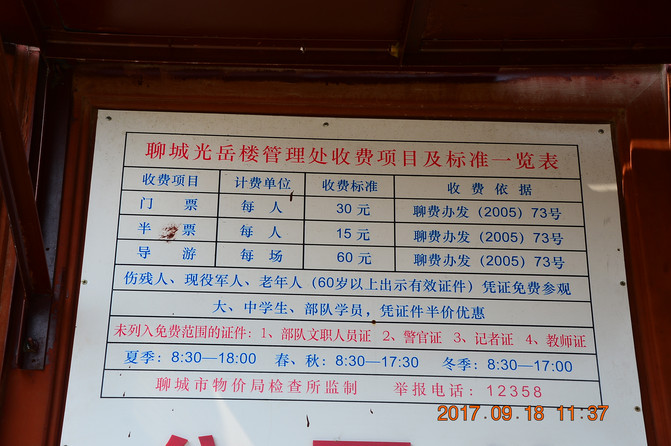 聊城光岳楼管理处收费项目及标准一览表
收费项目 计费单位 收费标准 收费依据
门票 每人 30元 聊费办发（2005）73号
半票 每人 15元 聊费办发（2005）73号
导游 每场 60元 聊费办发（2005）73号
伤残人、现役军人、老年人（60岁以上出示有效证件）凭证免费参观
大、中学生、部队学员，凭证件半价优惠
未列入免费范围的证件：1、部队文职人员证 2、警官证 3、记者证 4、教师证
夏季：8:30—18:00 春、秋：8:30—17:30 冬季：8:30—17:00
聊城市物价局检查所监制 举报电话：12358
2017.09.18 11:37